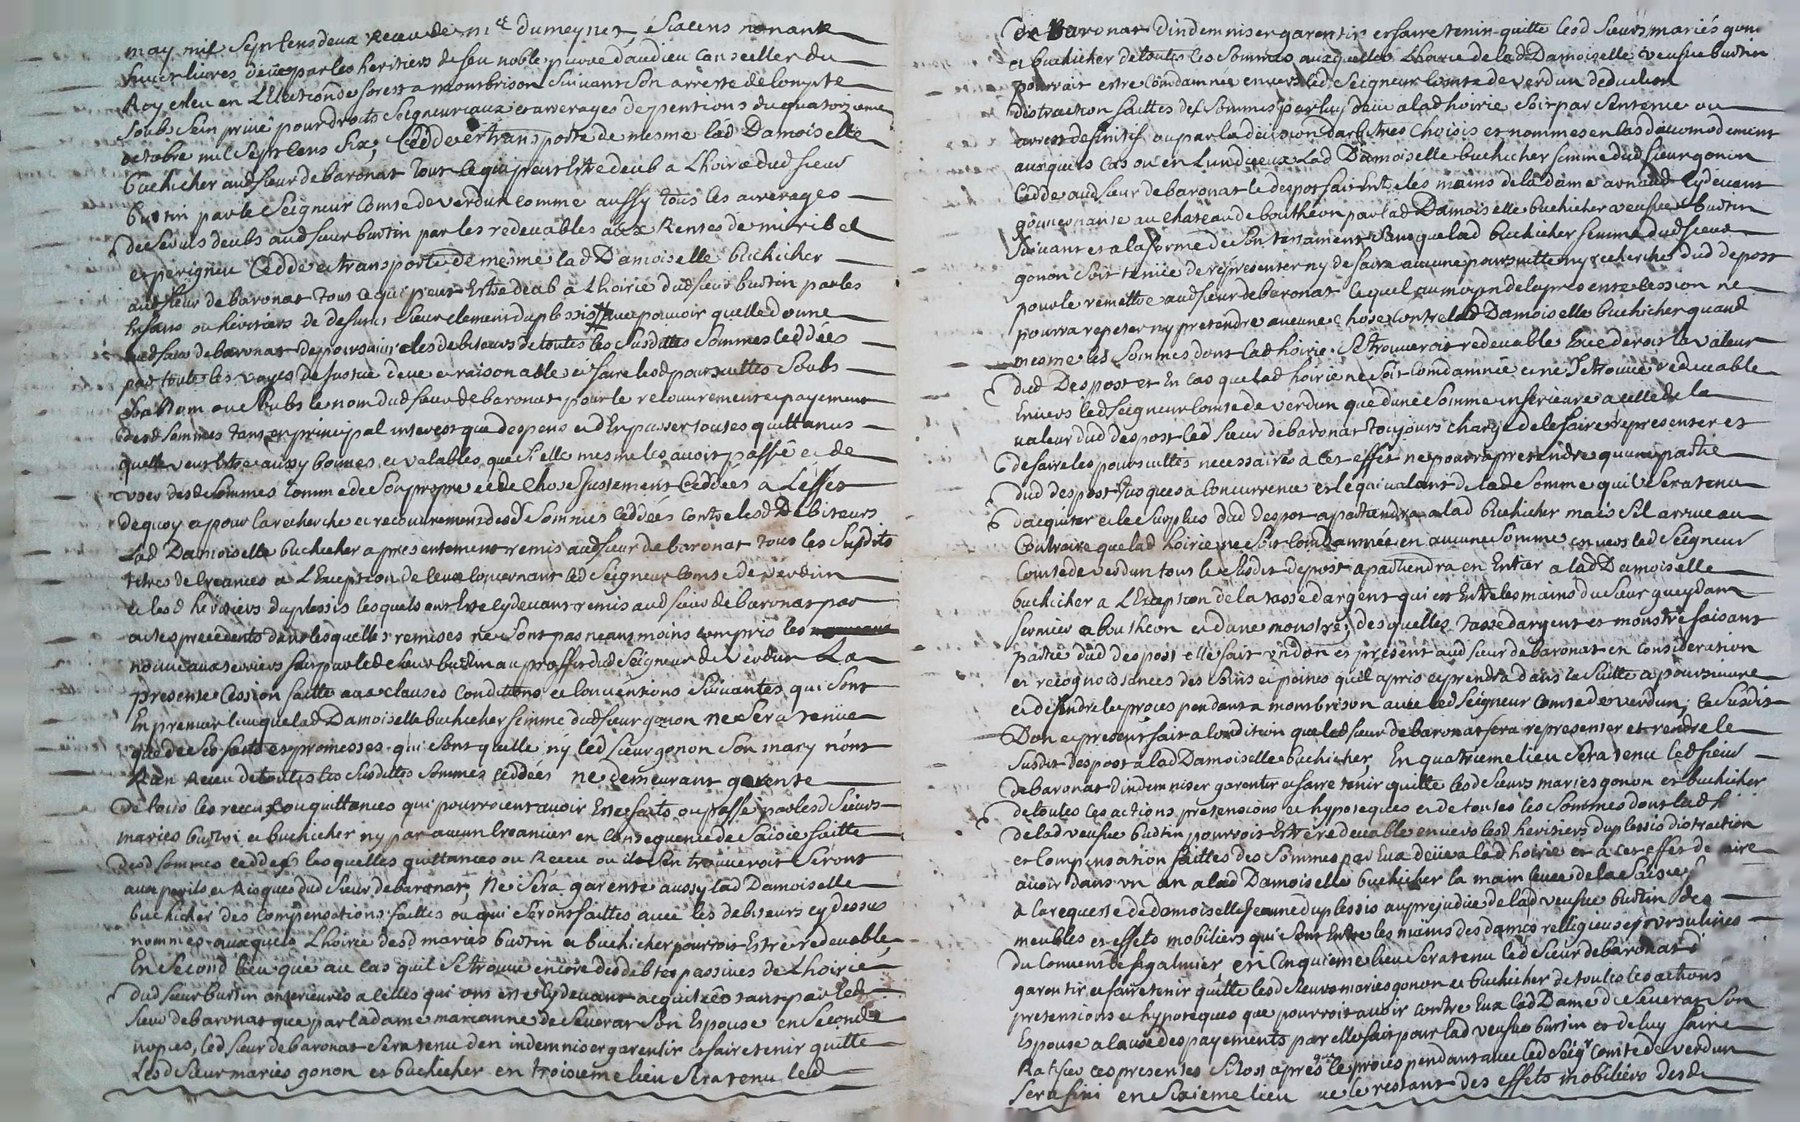 may mil Sept Cens deux receu de Mre dumeynet, & la cens nonante
huict livres deües par les heritiers de feu noble pierre daudieu conseiller du
Roy esleu en L'Election de forest a montbrison Suivant Son arresté de compte
Soubs Sein privé pour droits Seigneuriaux et arrerages de pentions du quatorzieme
octobre mil Sept Cens Six, Cedde et transporte de mesme lad Damoiselle
buchicher aud Sieur de baronat Tout Ce qui peut Estre deub a L'hoirie dud Sieur
burtin par le Seigneur Comte de verdun comme aussy tous les arrerages
de cens deubs aud Sieur burtin par les redevables aux Rentes de miribel
et perigneu Cedde et transporte de mesme lad Damoiselle buchicher
aud Sieur de baronat Tous ce qui peut Estre deub a L'hoirie dud Sieur burtin par les
Enfans ou héritiers de defunct Sieur Clement duplessis avec pouvoir quelle donne
aud Sieur de baronat de poursuivre les debiteurs de toutes les Susdittes Sommes Ceddées
par toute les voyes de Justice deue et raisonable et faire lesd poursuittes Soubs
Son Nom ou Soubs le nom dud Sieur de baronat pour le recouvrement et payement
desd Sommes Tant en principal interest que despens et d'En passer toutes quittances
quelle veut Estre aussy bonnes et valables que Si elle mesme les avoit passé et de
user desd Sommes Comme de Son propre et de Chose Justement Ceddées a L'effet
de quoy et pour la recherche et recouvrement desd Sommes Ceddées contre lesd Debiteurs
Lad Damoiselle buchicher a presentement remis aud Sieur de baronat Tous les Susdits
titres de Creances a L'Exception de Ceux Concernant led Seigneur Comte de verdun
et lesd heritiers duplessis lesquels ont Esté Cydevant remis aud Sieur de baronat par
actes precedents dans lesquelles remises ne Sont pas neanmoins compris les
nouveaux terriers fait par led Sieur burtin au proffit dud Seigneur de verdun La
presente Cession faitte aux clauses Conditions et Conventions Suivantes qui Sont
En premier lieu que lad Damoiselle buchicher femme dud Sieur gonon ne Sera tenüe
que de Ses faits et promesses qui Sont quelle ny led Sieur gonon Son mary n'ont
Rien Receu de toutes les Susdittes Sommes Ceddées ne demeurant garente
de tous les receus ou quittances qui pourroient avoir Esté faits ou passé par lesd Sieurs
mariés burtin et buchicher ny par aucun Creancier en Consequence de Saisie faitte
desd Sommes Ceddées lesquelles quittances ou Receu ou il S'en trouveroit Seront
aux perils et Risques dud Sieur de baronat, Ne Sera garente aussy lad Damoiselle
buchicher des Compensations faittes ou qui Seront faittes avec les debiteurs cy dessus
nommes auxquels L'hoirie desd mariés burtin et buchicher pourroit Estre redevable,
En Second lieu que au cas quil Se trouve encore des debtes passives de L'hoirie
dud Sieur burtin anterieures a Celles qui ont esté Cydevant acquittées tant par led
Sieur de baronat que par la dame marianne de Severat Son Espouse en Seconde
nopces, led Sieur de baronat Sera tenu d'en indemniser garentir et faire tenir quitte
Lesd Sieur mariés gonon et buchicher en troisieme lieu Sera tenu led
de Baronat d'indemniser garentir et faire tenir quitte lesd Sieurs mariés gonon
et buchicher de toutes les Sommes auxquelles L'hoirie de lad Damoiselle veufve burtin
pourroit estre Condamnée envers led Seigneur Comte de verdun deduction
distraction faittes des Sommes par luy deue a lad hoirie Soit par Sentence ou
arrest definitif ou par la decision d'arbitres Choisis et nommes en cas d'accomodement
auxquels Cas ou en L'un d'iceux Lad Damoiselle buchicher femme dud Sieur gonon
Cedde aud Sieur de baronat le despost fait Entre les mains de la dame arnaud Cydevant
gouvernante au chateau de bouthéon par lad Damoiselle buchicher veufve burtin
Suivant et a la forme de Son testament Sans que lad buchicher femme dud Sieur
gonon Soit tenüe de représenter ny de faire aucune poursuitte ny recherche dud depost
pour le remettre aud Sieur de baronat lequel au moyen de la presente Cession ne
pourra repeter ny pretendre aucune Chose contre lad Damoiselle buchicher quand
mesme les Sommes dont lad hoirie Se trouveroit redevable Excederoit la valeur
dud Despost et En cas que lad hoirie ne Soit Condamnée et ne Se trouve redevable
Envers led Seigneur Comte de verdun que d'une Somme inferieure a celle de la
valeur dud despost led Sieur de baronat toujours chargé de le faire representer et
de faire les poursuittes necessaires a Cet effet ne pourra pretendre qu'une partie
dud despost Jusques a Concurrence et l'equivalant de lad Somme qu'il Sera tenu
d'acquiter et le Surplus dud despost apartiendra a lad buchicher mais S'il arrive au
Contraire que lad hoirie ne Soit Condamnée en aucune Somme envers led Seigneur
Comte de verdun tous le Susdit depost apartiendra en Entier a lad Damoiselle
buchicher a L'Exception de la tasse d'argent qui est Entre les mains du Sieur gueydan
fermier a bouthéon et d'une monstre; desquelles Tasse d'argent et monstre faisant
partie dud despost elle fait un don et present aud Sieur de baronat en Consideration
et recognoissances des Soins et peines qu'il a pris et prendra dans la Suitte a poursuivre
et defendre le procès pendant a montbrison avec led Seigneur Comte de verdun, le Susdit
Don et present fait a Condition que led Sieur de baronat fera representer et rendre le
Susdit despost a lad Damoiselle buchicher, En quatrieme lieu Sera tenu led Sieur
de baronat d'indemniser garentir et faire tenir quitte lesd Sieurs mariés gonon et buchicher
de toutes les actions, pretensions et hypoteques et de toutes les Sommes dont lad h
de lad veufve burtin pourroit Estre redevable envers lesd heritiers duplessis distraction
et Compensation faittes des Sommes par Eux deüe a lad hoirie et a cet effet de faire
avoir dans un an a lad Damoiselle buchicher la main levée de la Saisie
a la requeste de damoiselle Jeanne duplessis au prejudice de lad veufve burtin des
meubles et effets mobiliers qui Sont Entre les mains des dames relligieuses ursulines
du Convent de St galmier en Cinquieme lieu Sera tenu led Sieur de baronat de
garentir et faire tenir quitte lesd Sieurs mariés gonon et buchicher de toutes les actions
pretensions et hypoteques que pourroit avoir contre Eux lad Dame de Severat Son
Espouse a la cause des payements par elle fait pour lad veufve burtin et de luy faire
Ratifier ces presentes Si tost apres que le procès pendant avec led Seigr Comte de verdun
Sera fini en Sixieme lieu que le restant des effets mobiliers desd